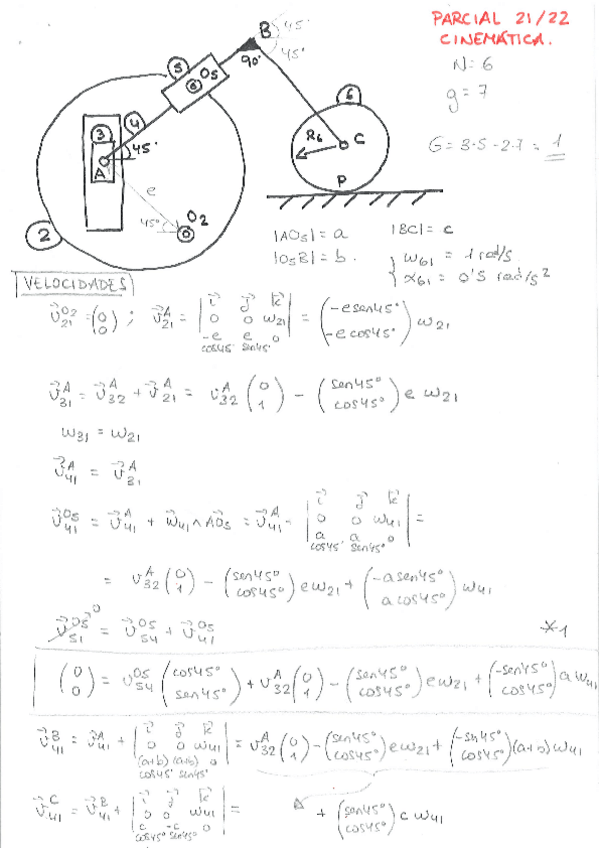 PARCIAL 21/22
CINEMÁTICA.
N: 6
g = 7
G = 3·5 - 2·7 = 1
B
45°
45°
90°
5
O5
6
3
4
45°
A
R6
C
e
P
45°
O2
2
|AO5| = a
|BC| = c
|O5B| = b.
{ ω61 = 1 rad/s
α61 = 0'5 rad/s²
VELOCIDADES
v⃗21^O2 = (0 0) ; v⃗21^A = | i⃗ j⃗ k⃗ ; 0 0 ω21 ; -e cos45° e sen45° 0 | = (-e sen45° -e cos45°) ω21
v⃗31^A = v⃗32^A + v⃗21^A = v32^A (0 1) - (sen45° cos45°) e ω21
ω31 = ω21
v⃗41^A = v⃗31^A
v⃗41^O5 = v⃗41^A + ω⃗41 ∧ AO5 = v⃗41^A - | i⃗ j⃗ k⃗ ; 0 0 ω41 ; a cos45° a sen45° 0 | =
= v32^A (0 1) - (sen45° cos45°) e ω21 + (-a sen45° a cos45°) ω41
v⃗51^O5 0 = v⃗54^O5 + v⃗41^O5 *1
(0 0) = v54^O5 (cos45° sen45°) + v32^A (0 1) - (sen45° cos45°) e ω21 + (-sen45° cos45°) a ω41
v⃗41^B = v⃗41^A + | i⃗ j⃗ k⃗ ; 0 0 ω41 ; (a+b) cos45° (a+b) sen45° 0 | = v32^A (0 1) - (sen45° cos45°) e ω21 + (-sen45° cos45°) (a+b) ω41
v⃗41^C = v⃗41^B + | i⃗ j⃗ k⃗ ; 0 0 ω41 ; c cos45° -c sen45° 0 | = + (sen45° cos45°) c ω41